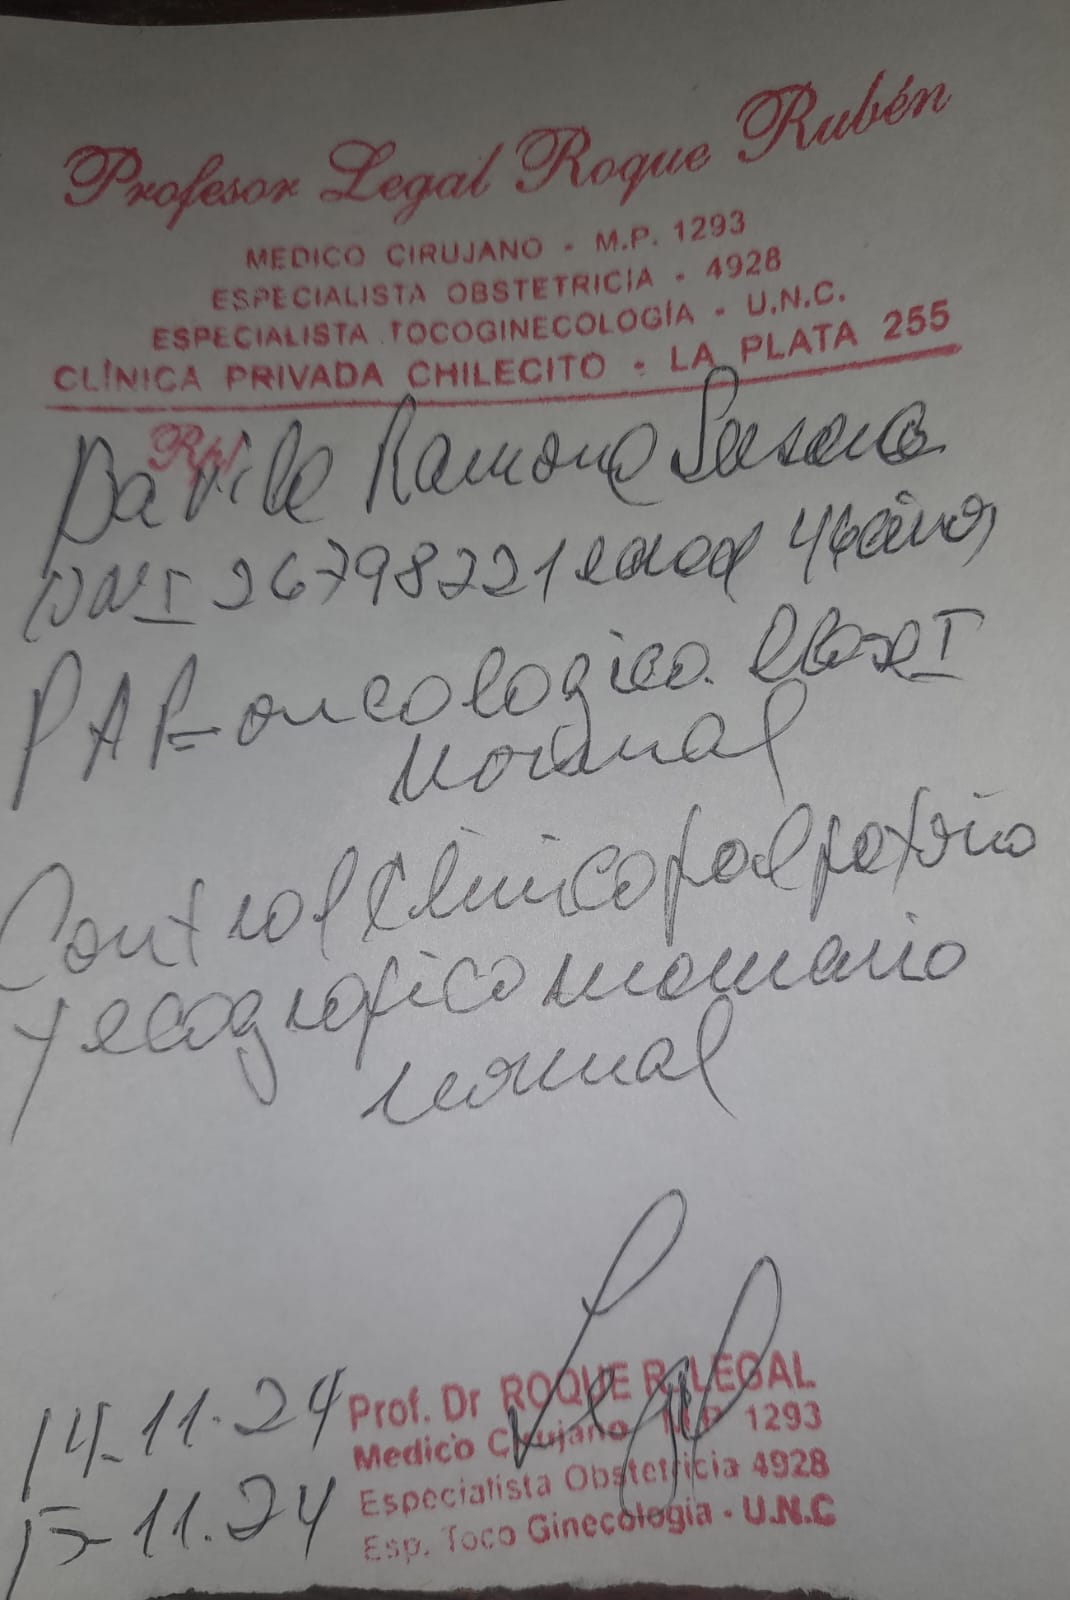 Profesor Legal Roque Rubén
MEDICO CIRUJANO - M.P. 1293
ESPECIALISTA OBSTETRICIA - 4928
ESPECIALISTA TOCOGINECOLOGÍA - U.N.C.
CLÍNICA PRIVADA CHILECITO - LA PLATA 255
Rp/
Davila Ramona Susana
DNI 26798221 edad 46 años
PAP- oncologico. clase I
normal
Control Clinico palpatorio
y ecografico mamario
normal
14-11-24
15-11.24
Prof. Dr ROQUE R. LEGAL
Medico Cirujano M.P. 1293
Especialista Obstetricia 4928
Esp. Toco Ginecología - U.N.C